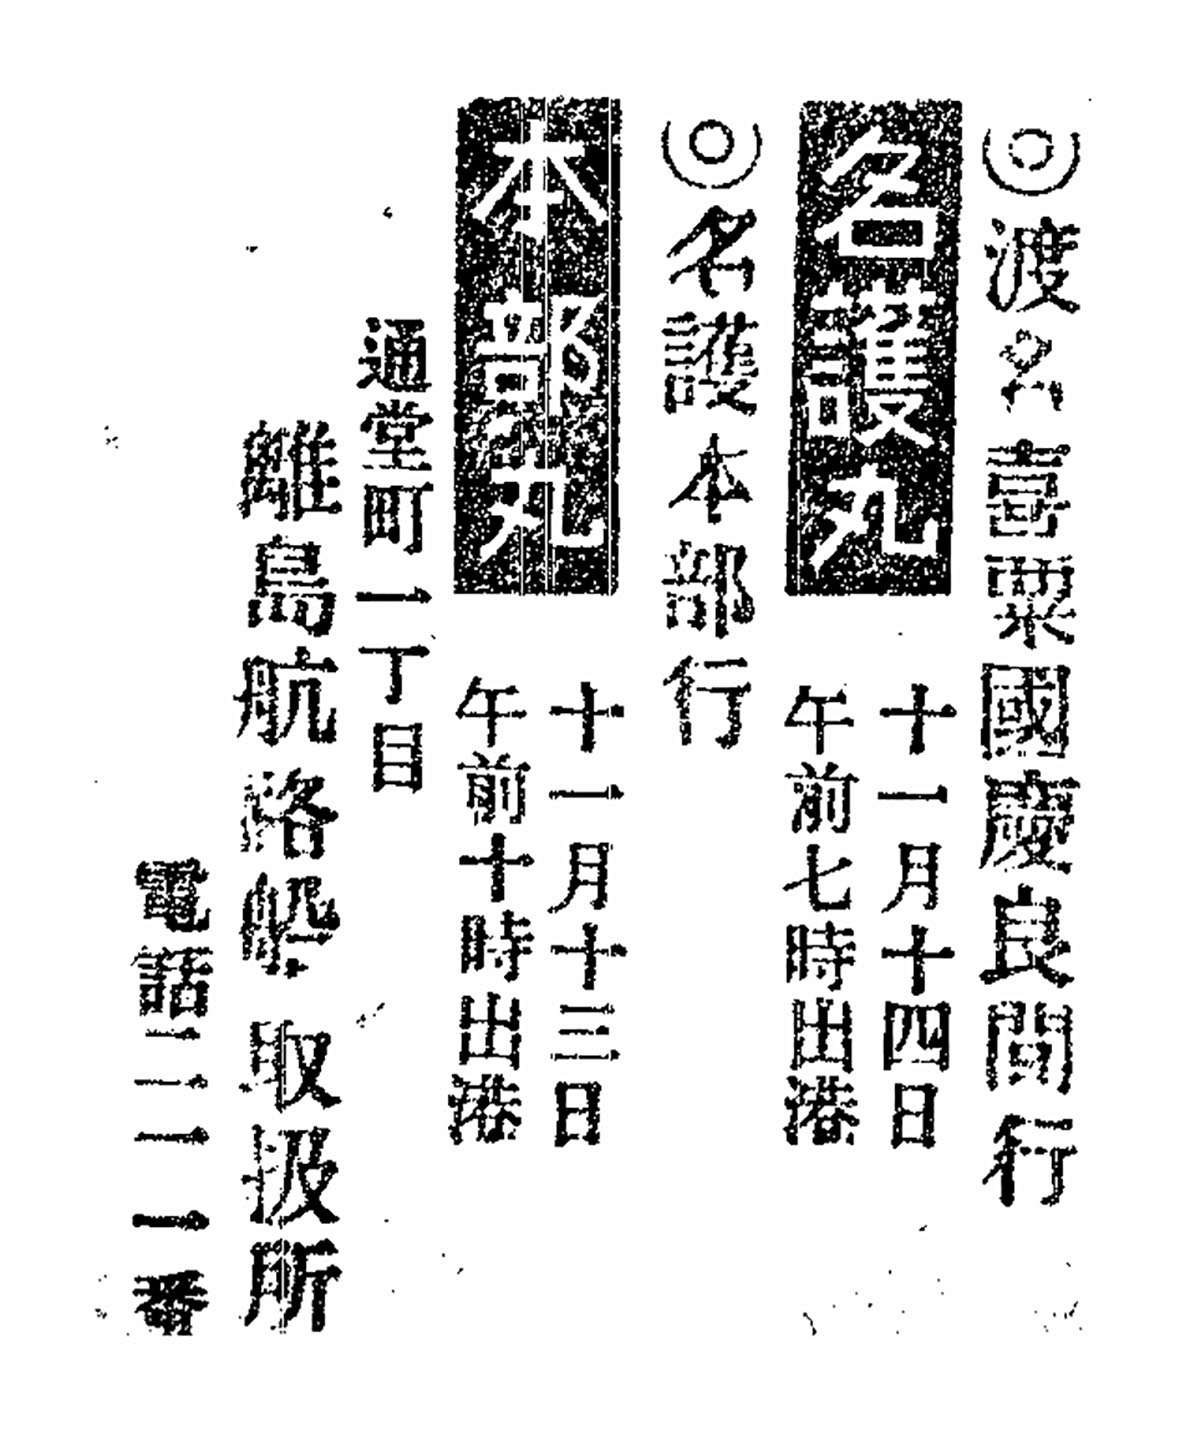 ◎渡名喜粟國慶良間行
名護丸
十一月十四日
午前七時出港
◎名護本部行
本部丸
十一月十三日
午前十時出港
通堂町一丁目
離島航路船取扱所
電話 一番